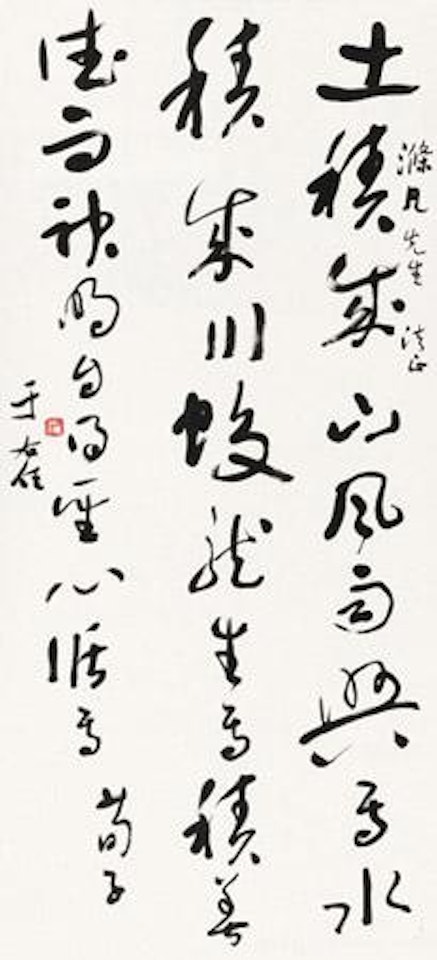 滌凡先生 法正
土積成山風雨興焉水
積成川蛟龍生焉積善
德而神明自得聖心循焉
荀子
于右任